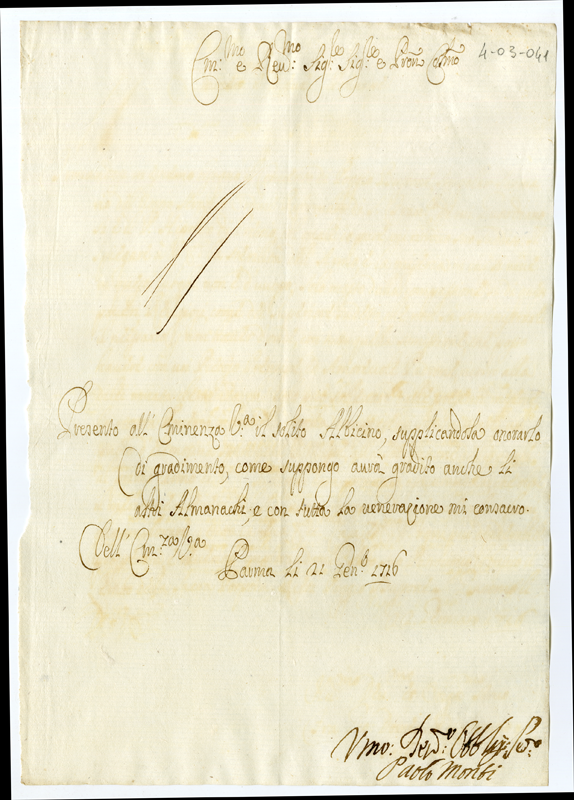 Em:mo e Reu:mo Sig:re Sig:re e Pron Colmo
4-03-041
Presento all' Eminenza V:a il solito Albicino, supplicandola onorarlo
di gradimento, come suppongo aurà gradito anche li
altri Almanachi, e con tutta la venerazione mi consacro.
Dell' Em:za V:a
Parma li 21 Gen:o 1716
Vmo: Deu:o Obb
Paolo Monti